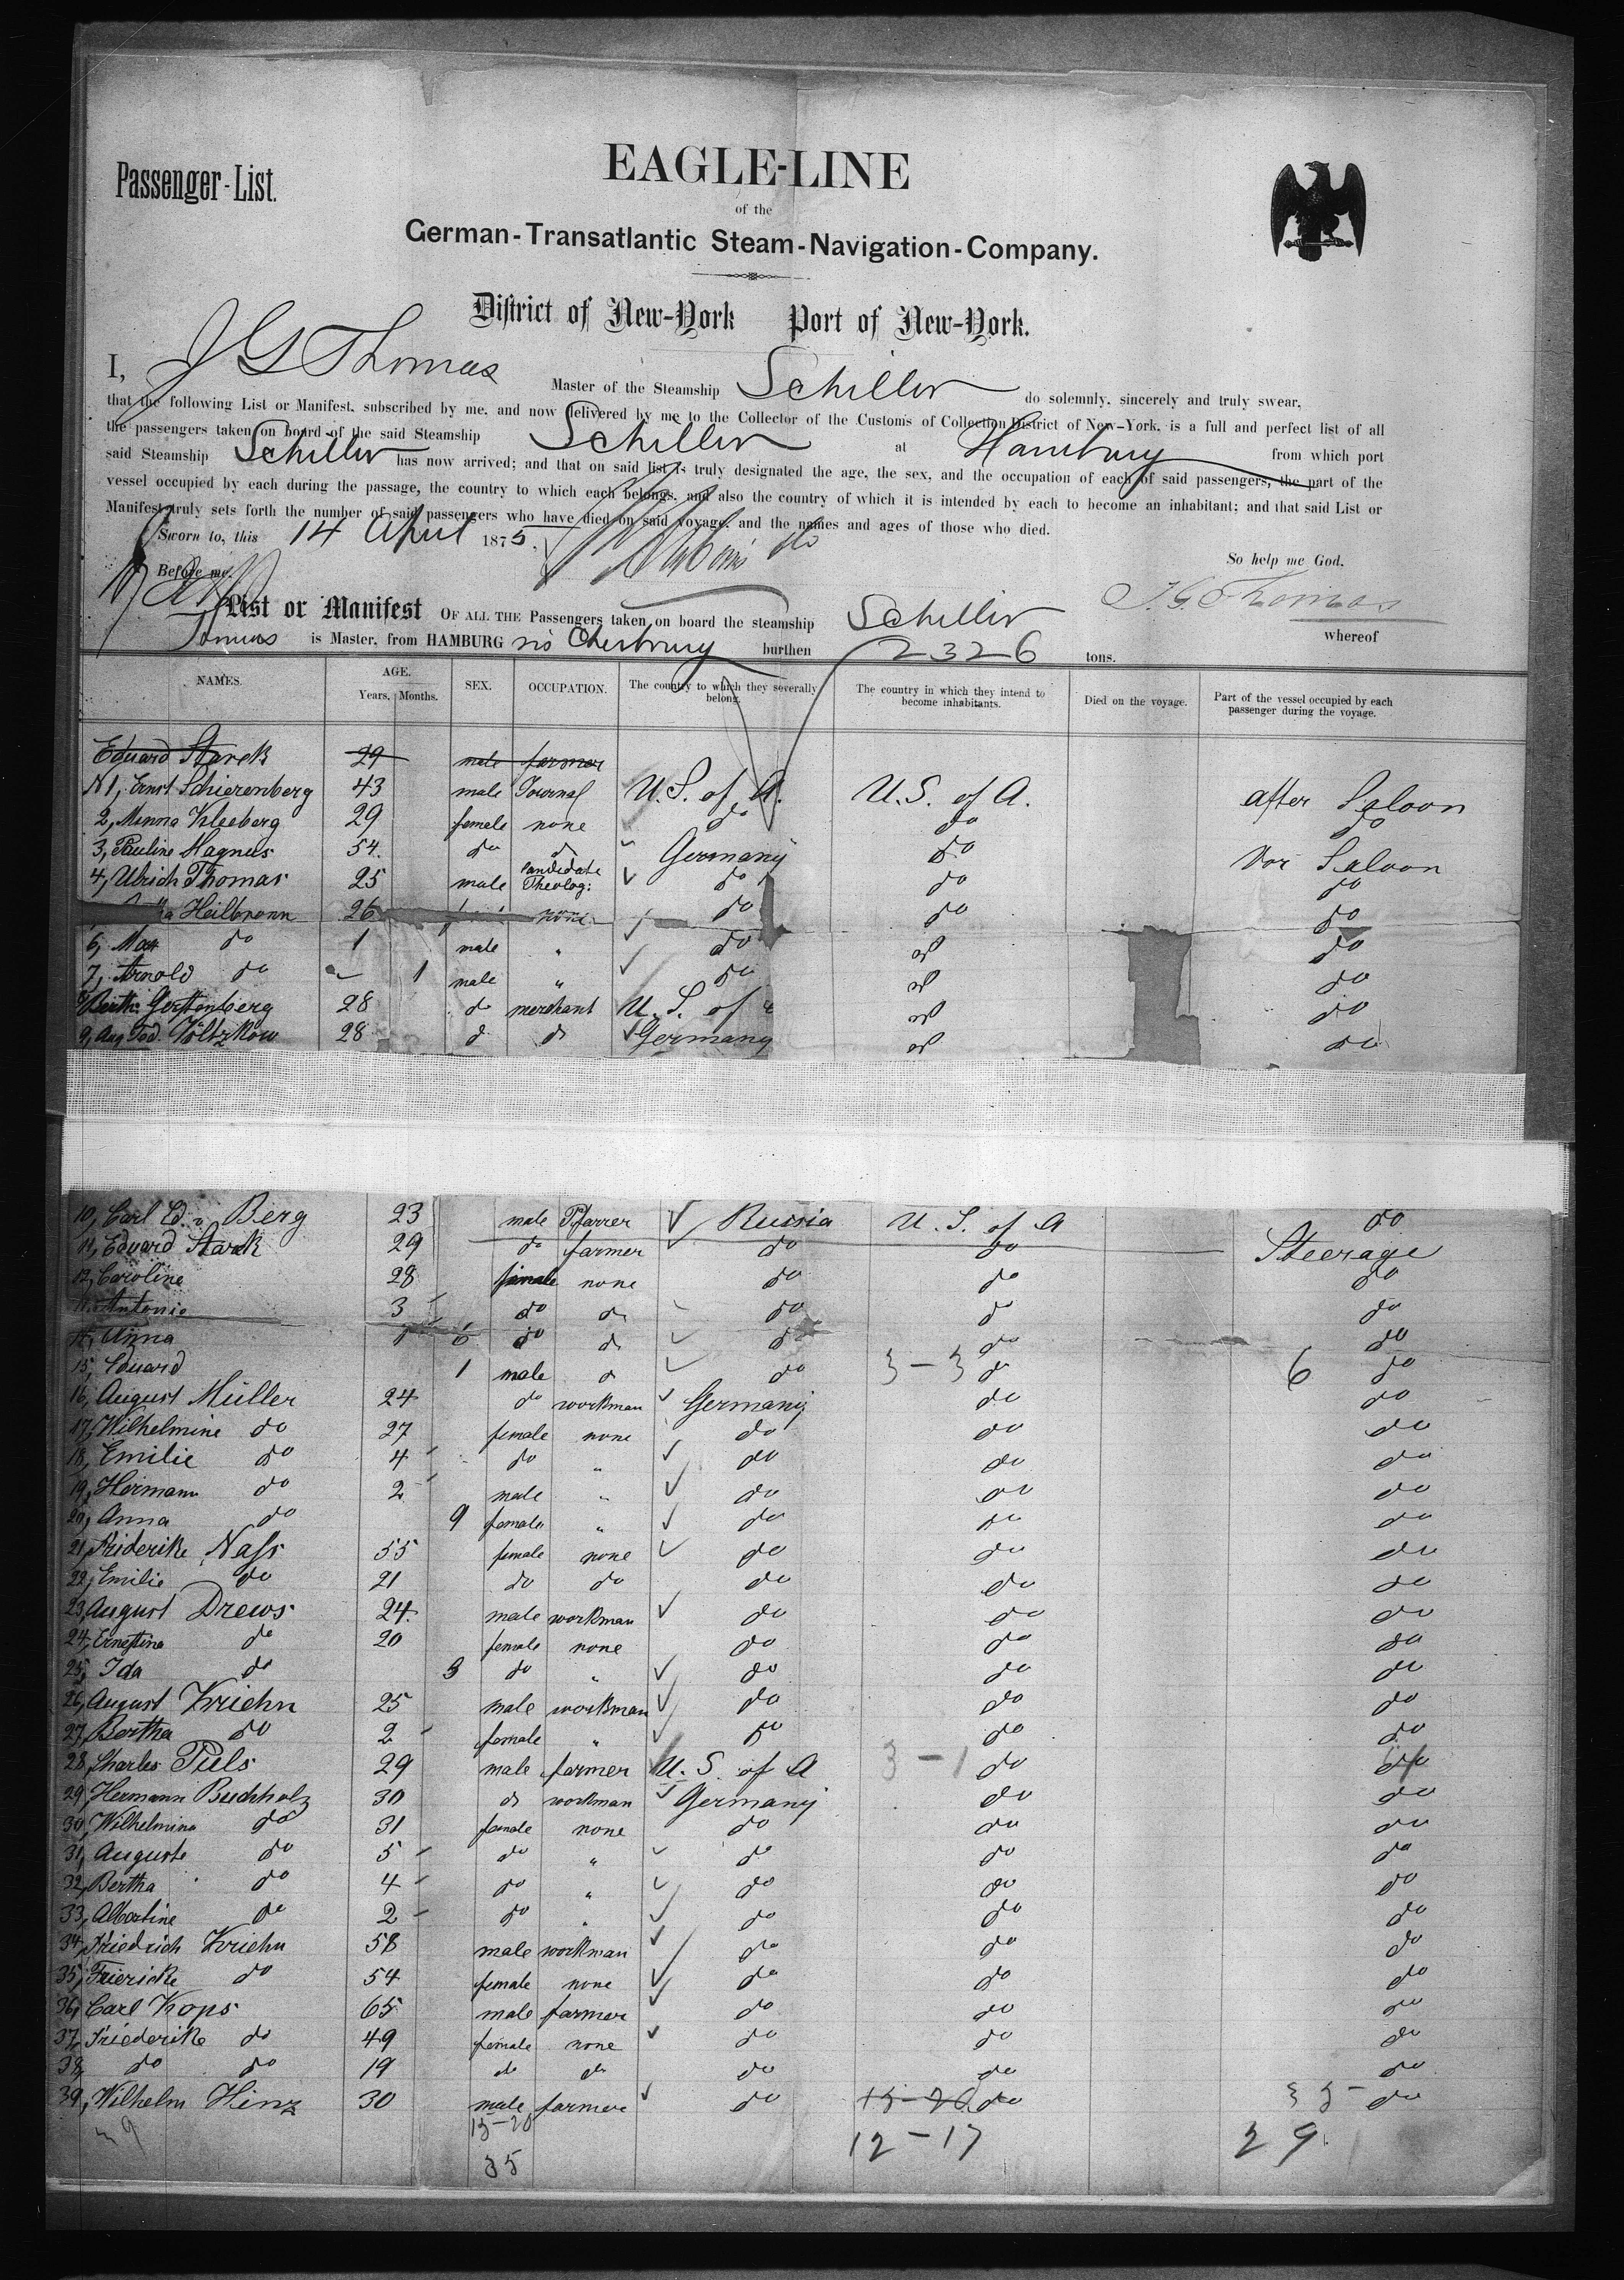 Passenger-List.
EAGLE-LINE
of the
German-Transatlantic Steam-Navigation-Company.
District of New-York Port of New-York.
I, J G Thomas Master of the Steamship Schiller do solemnly, sincerely and truly swear,
that the following List or Manifest, subscribed by me, and now delivered by me to the Collector of the Customs of Collection District of New-York, is a full and perfect list of all
the passengers taken on board of the said Steamship Schiller at Hamburg from which port
said Steamship Schiller has now arrived; and that on said list is truly designated the age, the sex, and the occupation of each of said passengers, the part of the
vessel occupied by each during the passage, the country to which each belongs, and also the country of which it is intended by each to become an inhabitant; and that said List or
Manifest truly sets forth the number of said passengers who have died on said voyage, and the names and ages of those who died.
Sworn to, this 14 April 1875.
So help me God.
Before me.
J. G. Thomas
List or Manifest OF ALL THE Passengers taken on board the steamship Schiller whereof
Thomas is Master, from HAMBURG via Cherbourg burthen 2326 tons.
NAMES. AGE. Years. Months. SEX. OCCUPATION. The country to which they severally belong. The country in which they intend to become inhabitants. Died on the voyage. Part of the vessel occupied by each passenger during the voyage.
Eduard Starck 29 male farmer
N 1, Ernst Schierenberg 43 male Journal U. S. of A. U. S. of A. after Saloon
2, Minna Kleeberg 29 female none do do do
3, Pauline Magnus 54 do do Germany do Vor Saloon
4, Ulrich Thomas 25 male Candidate Theolog: do do do
Heilbronn 26 none do do do
6, Max do 1 male " do do do
7, Arnold do 1 male " do do do
8, Berth. Gerstenberg 28 do merchant U. S. of do do
9, Aug Fed. Völtzkow 28 do do Germany do do
10, Carl Ed. v. Berg 23 male Pfarrer Russia U. S. of A do
11, Eduard Starck 29 do farmer do do Steerage
12, Caroline 28 female none do do do
13, Antonie 3 do do do do do
14, Anna 1 6 do do do do do
15, Eduard 1 male do do 3-3 do 6 do
16, August Müller 24 do workman Germany do do
17, Wilhelmine do 27 female none do do do
18, Emilie do 4 do " do do do
19, Hermann do 2 male " do do do
20, Anna do 9 female " do do do
21, Friderike Nass 55 female none do do do
22, Emilie do 21 do do do do do
23, August Drews 24 male workman do do do
24, Ernestine do 20 female none do do do
25, Ida do 3 do " do do do
26, August Kriehn 25 male workman do do do
27, Bertha do 2 female " do do do
28, Charles Piels 29 male farmer U. S. of A 3-1 do do
29, Hermann Buchholz 30 do workman Germany do do
30, Wilhelmine do 31 female none do do do
31, Auguste do 5 do " do do do
32, Bertha do 4 do " do do do
33, Albertine do 2 do " do do do
34, Friedrich Kriehn 58 male workman do do do
35, Friericke do 54 female none do do do
36, Carl Kops 65 male farmer do do do
37, Friederike do 49 female none do do do
38, do do 19 do do do do do
39, Wilhelm Hinz 30 male farmer do 15-20 do 35 do
15-20 12-17 29
35